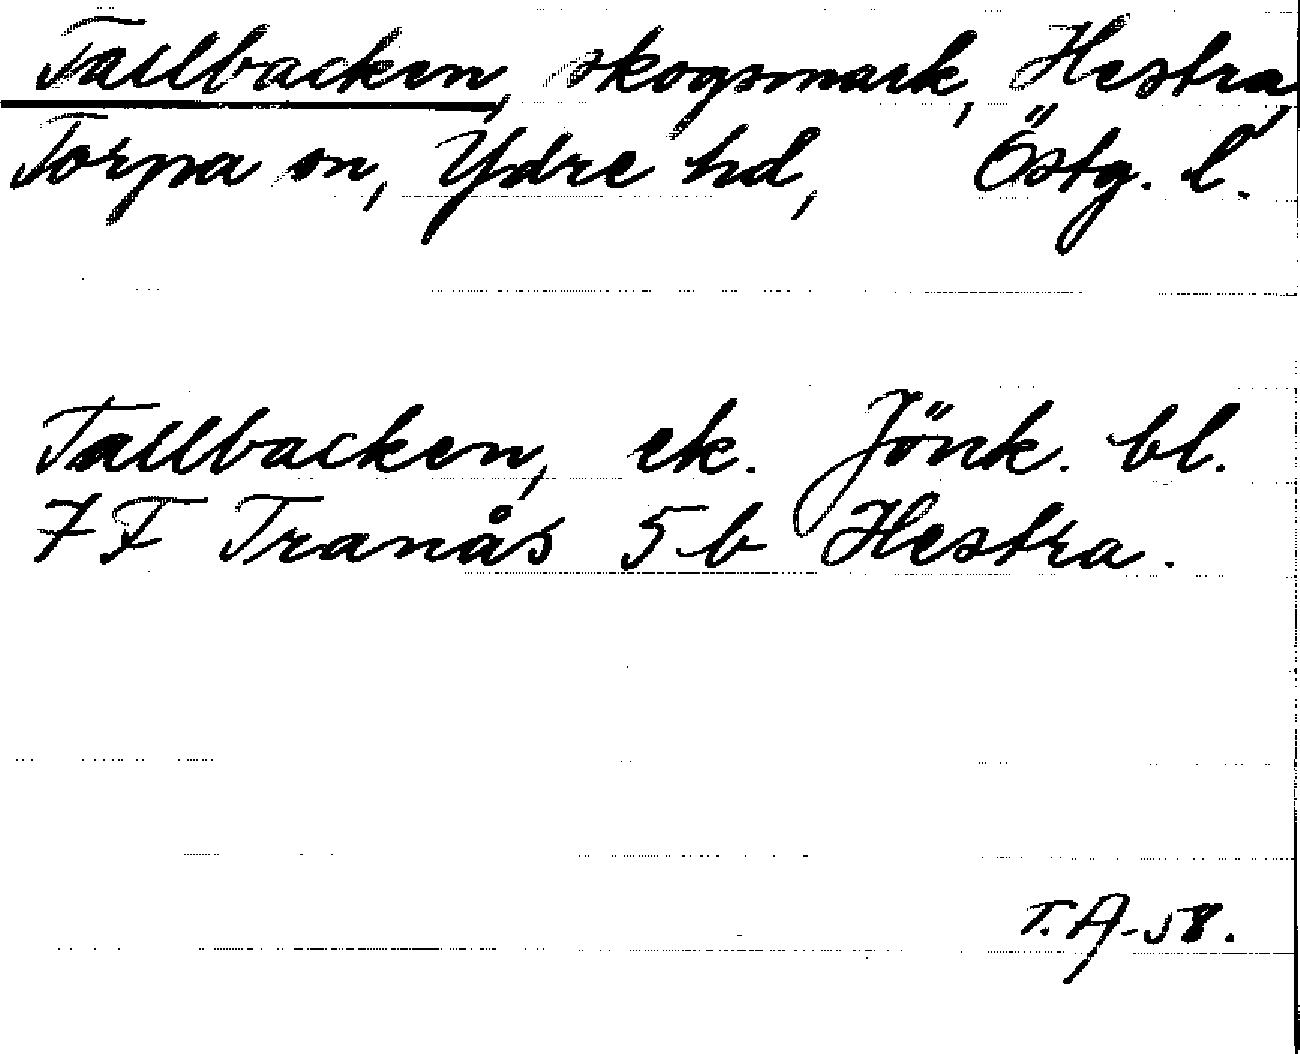 Tallbacken, skogsmark, Hestra,
Torpa sn, Ydre hd, Östg. l.
Tallbacken, ek. Jönk. bl.
7 F Tranås 5 b Hestra.
T. A-58.